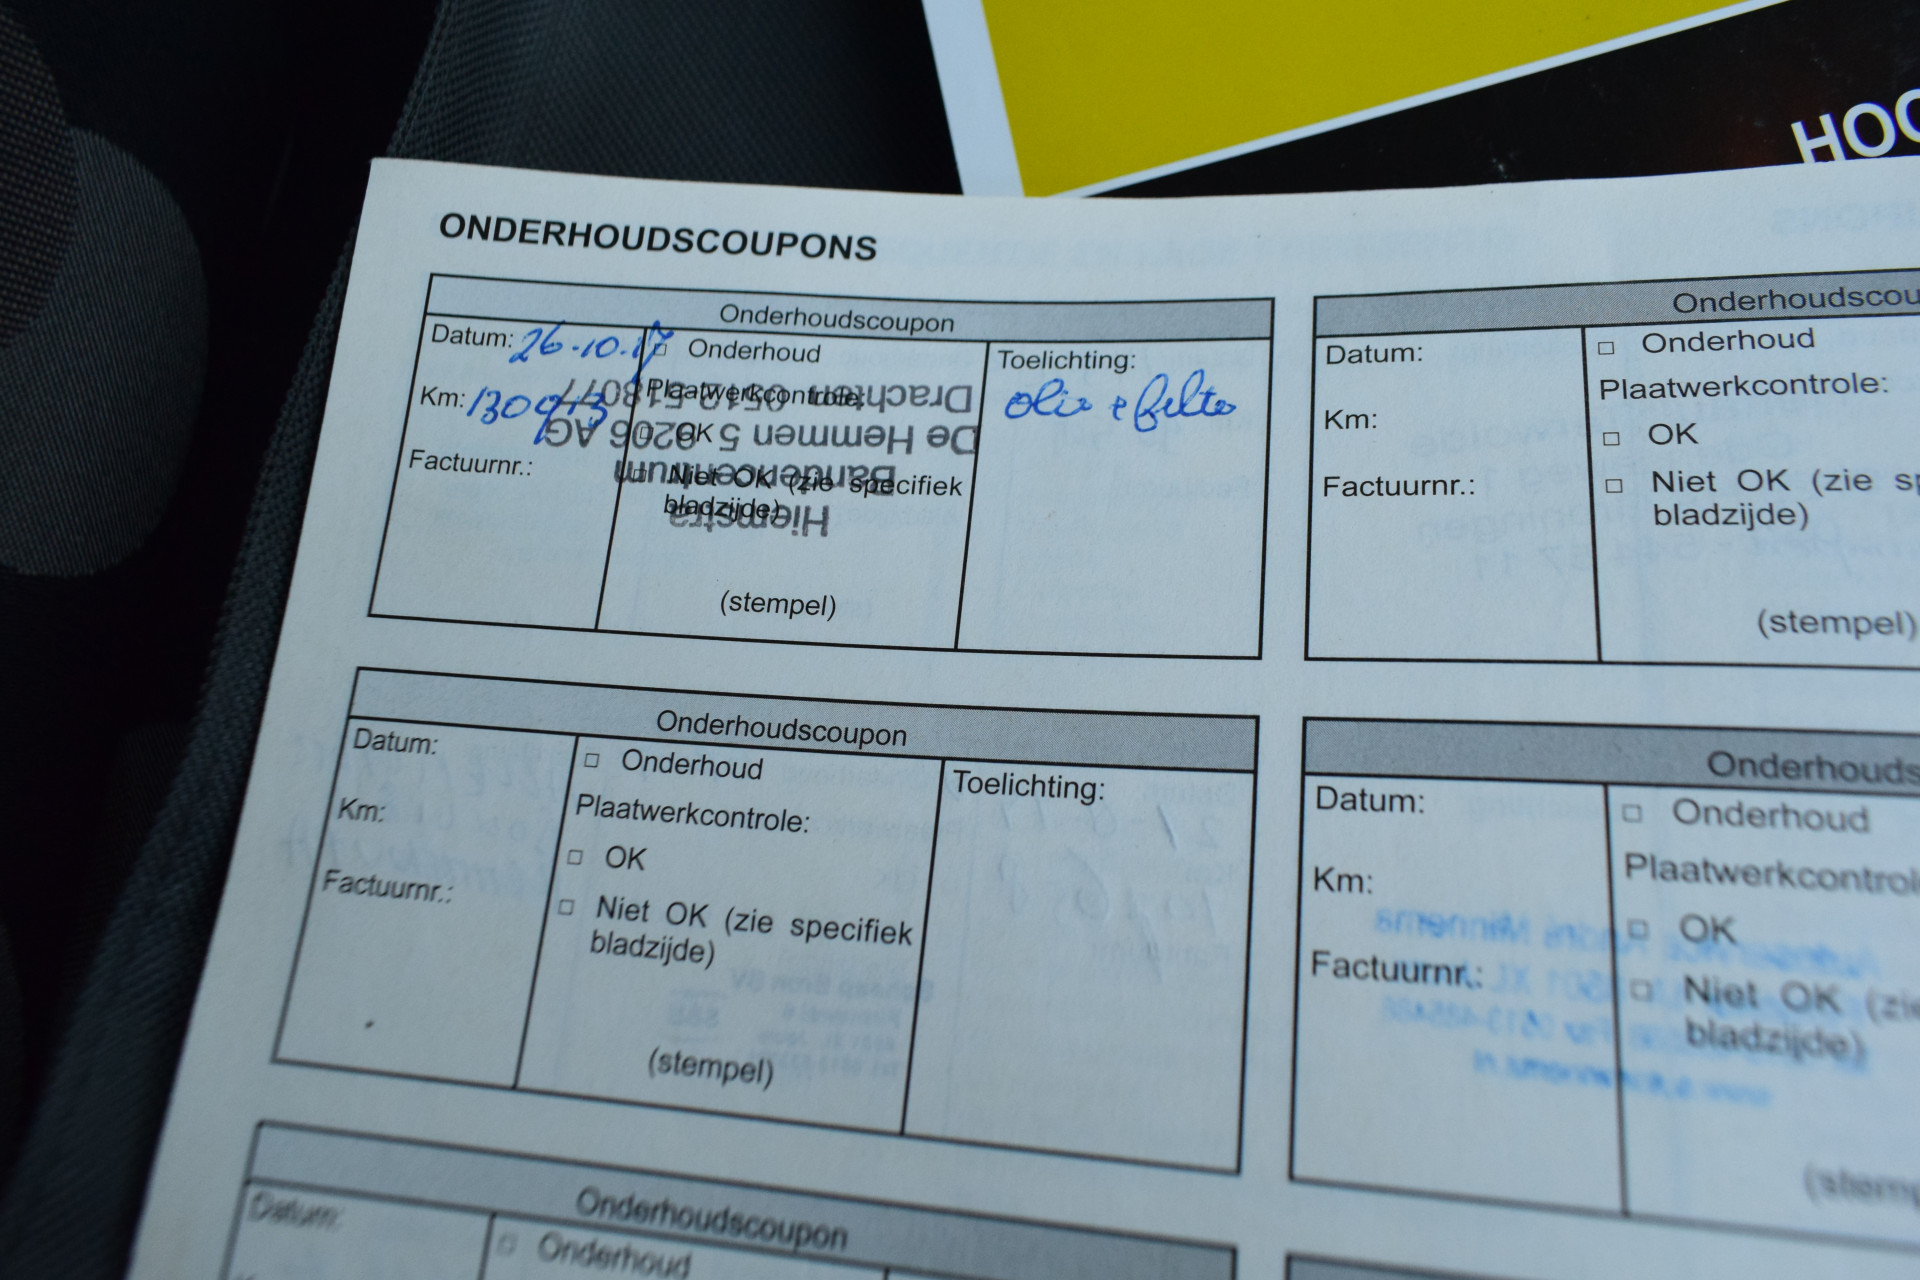 HOO
ONDERHOUDSCOUPONS
Onderhoudscoupon
Datum: 26.10.17
Km: 130913
Factuurnr.:
□ Onderhoud
Plaatwerkcontrole:
□ OK
□ Niet OK (zie specifiek
bladzijde)
(stempel)
Toelichting:
olie + filter
Hiemstra
Bandencentrum
De Hemmen 5 9206 AG
Drachten 0512-518077
Onderhoudscou
Datum:
Km:
Factuurnr.:
□ Onderhoud
Plaatwerkcontrole:
□ OK
□ Niet OK (zie sp
bladzijde)
(stempel)
Onderhoudscoupon
Datum:
Km:
Factuurnr.:
□ Onderhoud
Plaatwerkcontrole:
□ OK
□ Niet OK (zie specifiek
bladzijde)
(stempel)
Toelichting:
Onderhouds
Datum:
Km:
Factuurnr.:
□ Onderhoud
Plaatwerkcontrol
□ OK
□ Niet OK (zie
bladzijde)
(stemp
Onderhoudscoupon
Datum:
□ Onderhoud